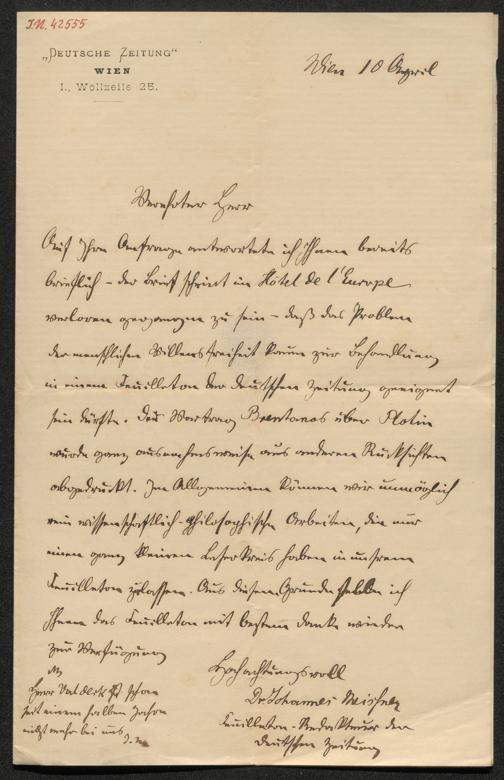 I.N. 42555
„DEUTSCHE ZEITUNG“
WIEN
I., Wollzeile 25.
Wien 10 April
Verehrter Herr
Auf Ihre Anfrage antwortete ich Ihnen bereits
brieflich – der Brief scheint im Hôtel de l'Europe
verloren gegangen zu sein – daß das Problem
der menschlichen Willensfreiheit kaum zur Behandlung
in einem Feuilleton der deutschen Zeitung geeignet
sein dürfte. Der Vortrag Brentanos über Plotin
wurde ganz ausnahmsweise aus anderen Rücksichten
abgedruckt. Im Allgemeinen können wir unmöglich
rein wissenschaftlich-philosophische Arbeiten, die nur
einen ganz kleinen Leserkreis haben in unserem
Feuilleton zulassen. Aus diesem Grunde stelle ich
Ihnen das Feuilleton mit bestem Danke wieder
zur Verfügung
Hochachtungsvoll
Dr Johannes
Feuilleton-Redakteur der
Deutschen Zeitung
Herr ist schon
seit einem halben Jahre
nicht mehr bei uns